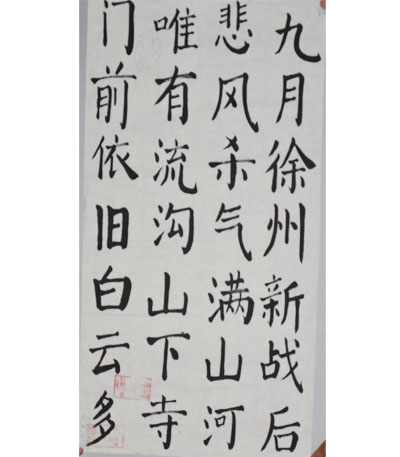 九月徐州新战后
悲风杀气满山河
唯有流沟山下寺
门前依旧白云多